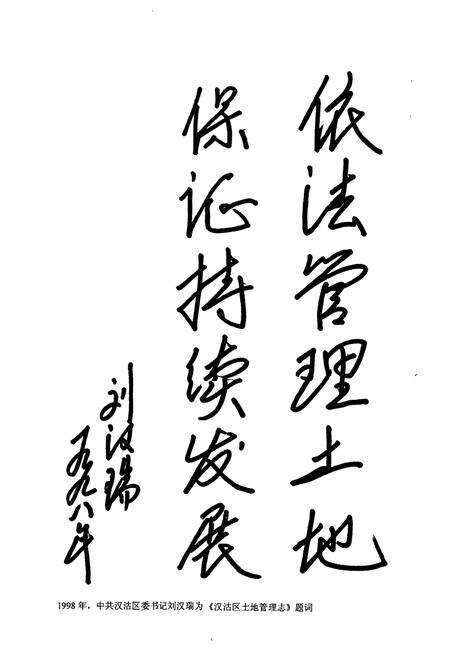 依法管理土地
保证持续发展
刘汉瑞
一九九八年
1998年,中共汉沽区委书记刘汉瑞为《汉沽区土地管理志》题词